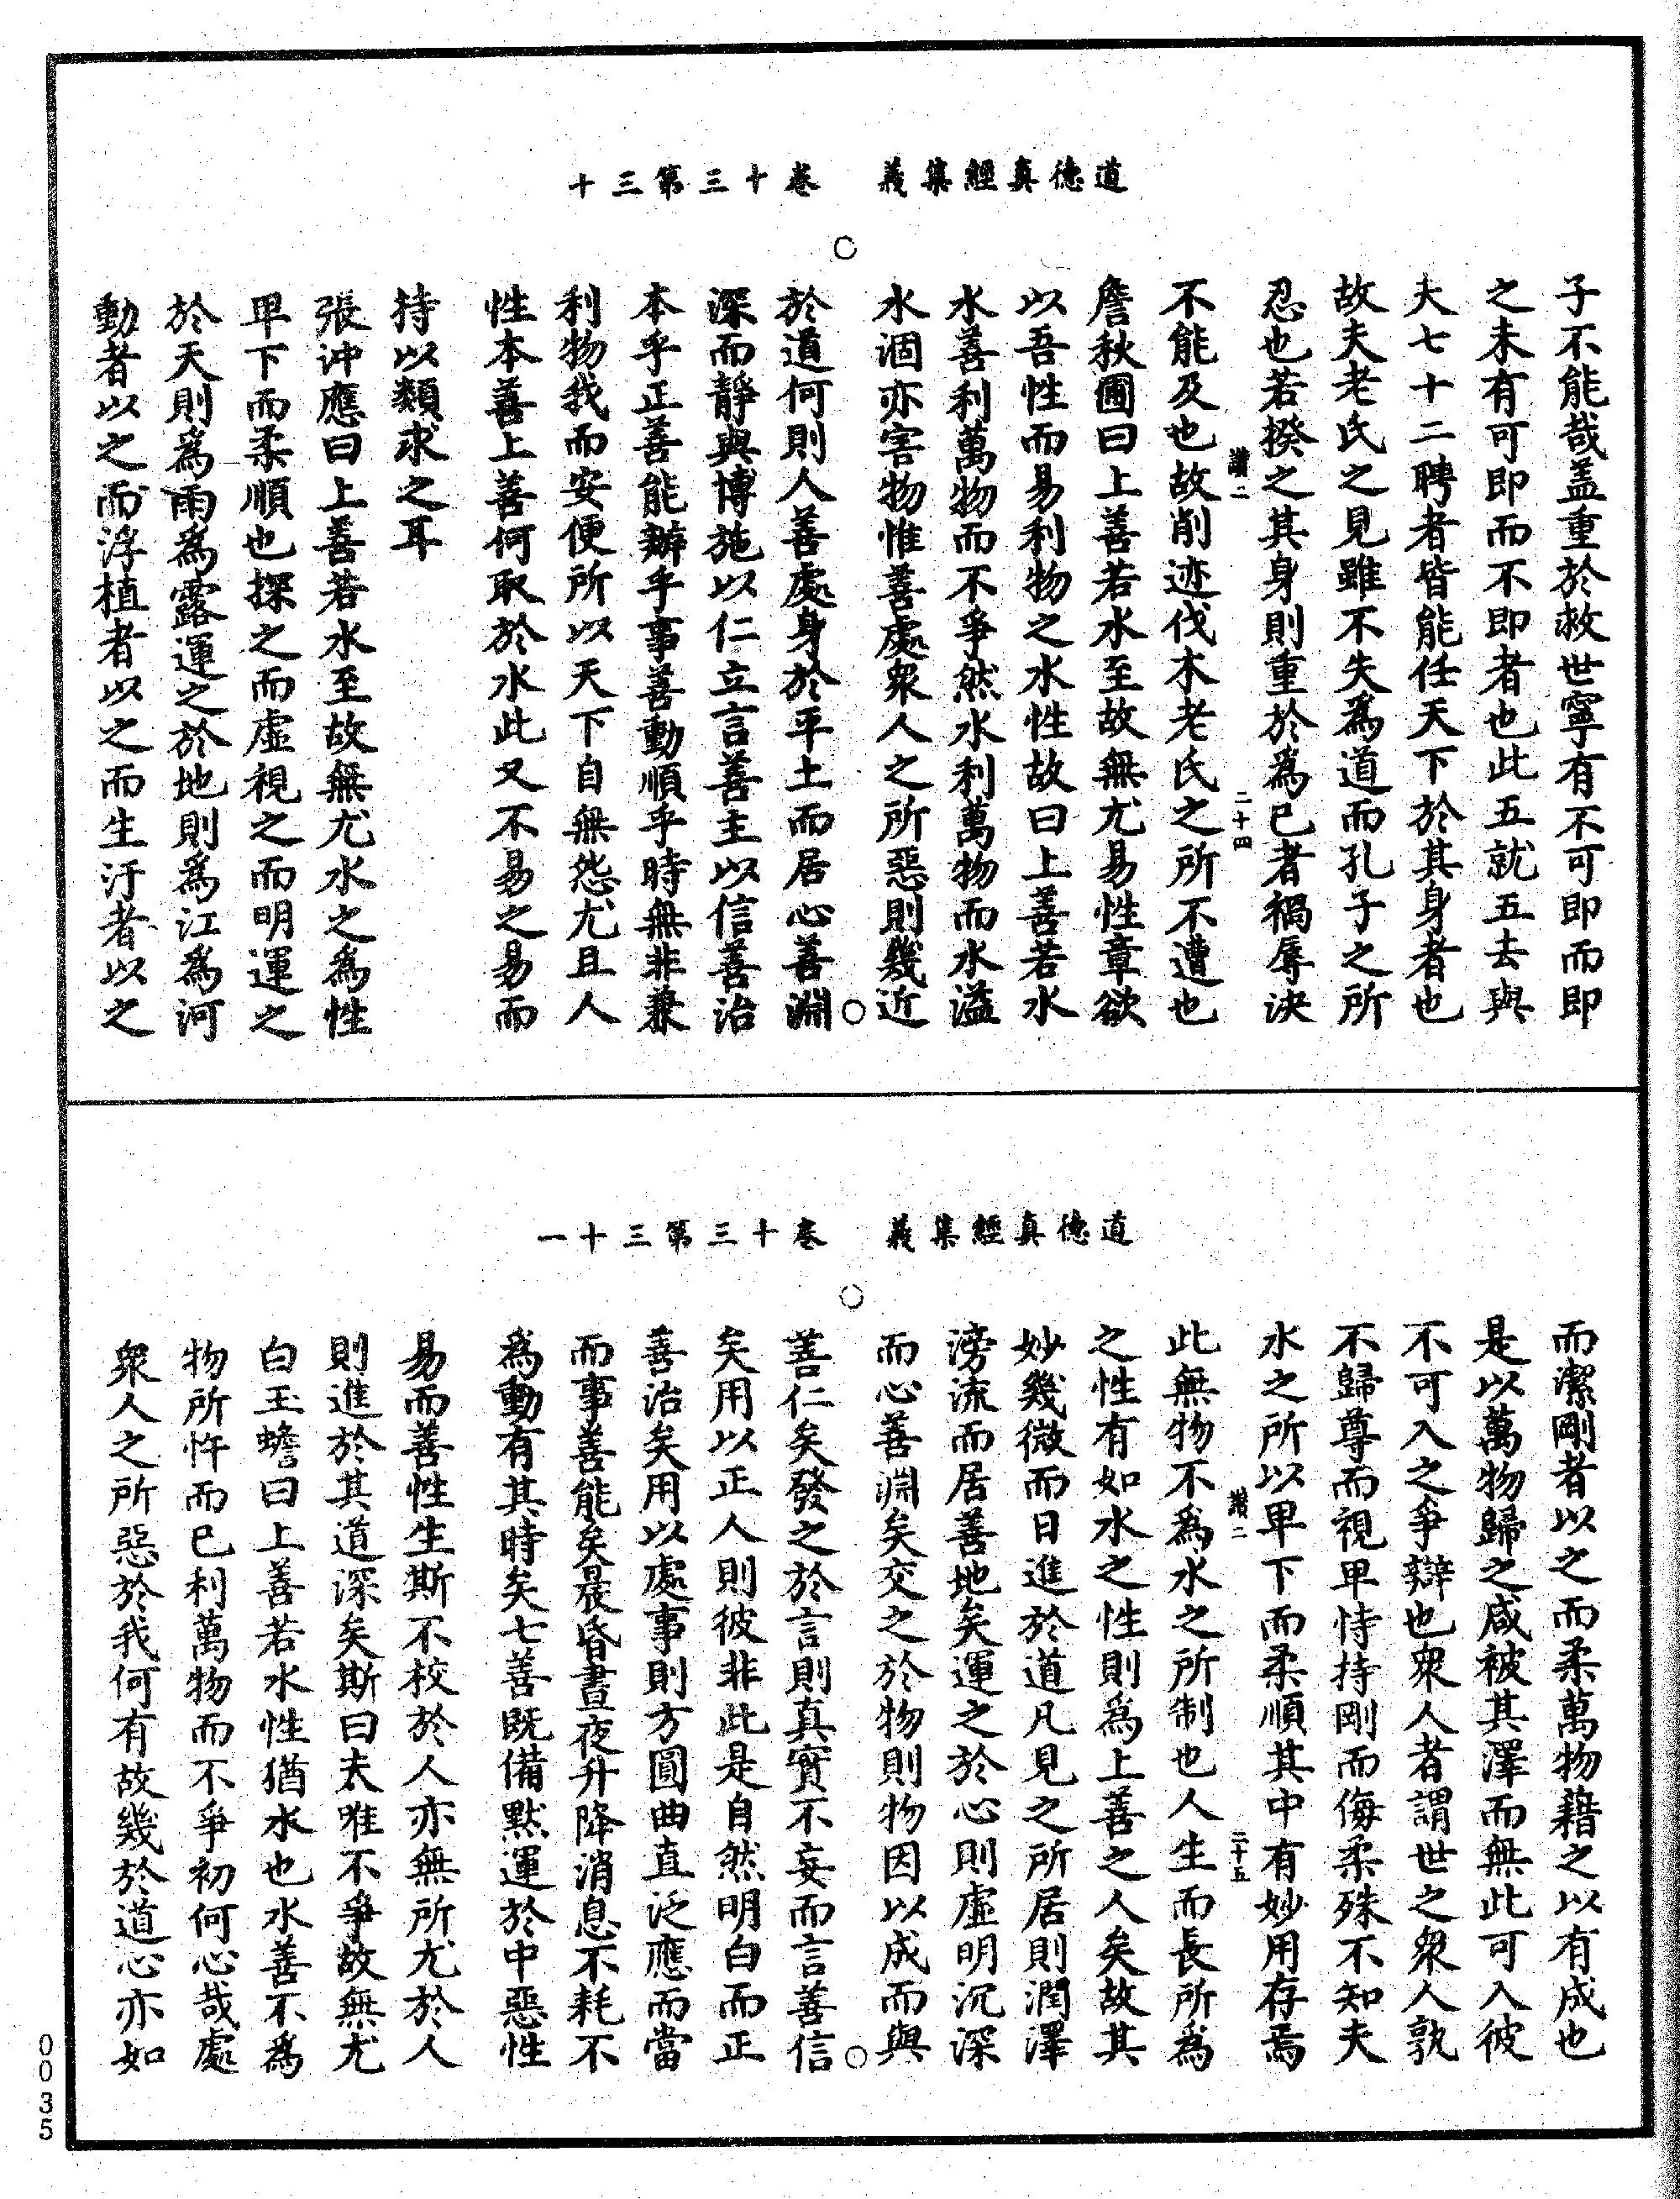 道德真經集義　卷十三第三十
子不能哉蓋重於救世寧有不可即而即
之未有可即而不即者也此五就五去與
夫七十二聘者皆能任天下於其身者也
故夫老氏之見雖不失為道而孔子之所
忍也若揆之其身則重於為已者禍辱決
讚二　二十四
不能及也故削迹伐木老氏之所不遭也
詹秋圃曰上善若水至故無尤易性章欲
以吾性而易利物之水性故曰上善若水
水善利萬物而不爭然水利萬物而水溢
水涸亦害物惟善處衆人之所惡則幾近
於道何則人善處身於平土而居心善淵
深而靜與博施以仁立言善主以信善治
本乎正善能辦乎事善動順乎時無非兼
利物我而安便所以天下自無怨尤且人
性本善上善何取於水此又不易之易而
持以類求之耳
張沖應曰上善若水至故無尤水之為性
卑下而柔順也探之而虛視之而明運之
於天則為雨為露運之於地則為江為河
動者以之而浮植者以之而生汙者以之
道德真經集義　卷十三第三十一
而潔剛者以之而柔萬物藉之以有成也
是以萬物歸之咸被其澤而無此可入彼
不可入之爭辯也衆人者謂世之衆人孰
不歸尊而視卑恃持剛而侮柔殊不知夫
水之所以卑下而柔順其中有妙用存焉
讚二　二十五
此無物不為水之所制也人生而長所為
之性有如水之性則為上善之人矣故其
妙幾微而日進於道凡見之所居則潤澤
滂流而居善地矣運之於心則虛明沉深
而心善淵矣交之於物則物因以成而與
善仁矣發之於言則真實不妄而言善信
矣用以正人則彼非此是自然明白而正
善治矣用以處事則方圓曲直泛應而當
而事善能矣晨昏晝夜升降消息不耗不
為動有其時矣七善既備默運於中惡性
易而善性生斯不校於人亦無所尤於人
則進於其道深矣斯曰夫唯不爭故無尤
白玉蟾曰上善若水性猶水也水善不為
物所忤而已利萬物而不爭初何心哉處
衆人之所惡於我何有故幾於道心亦如
0035